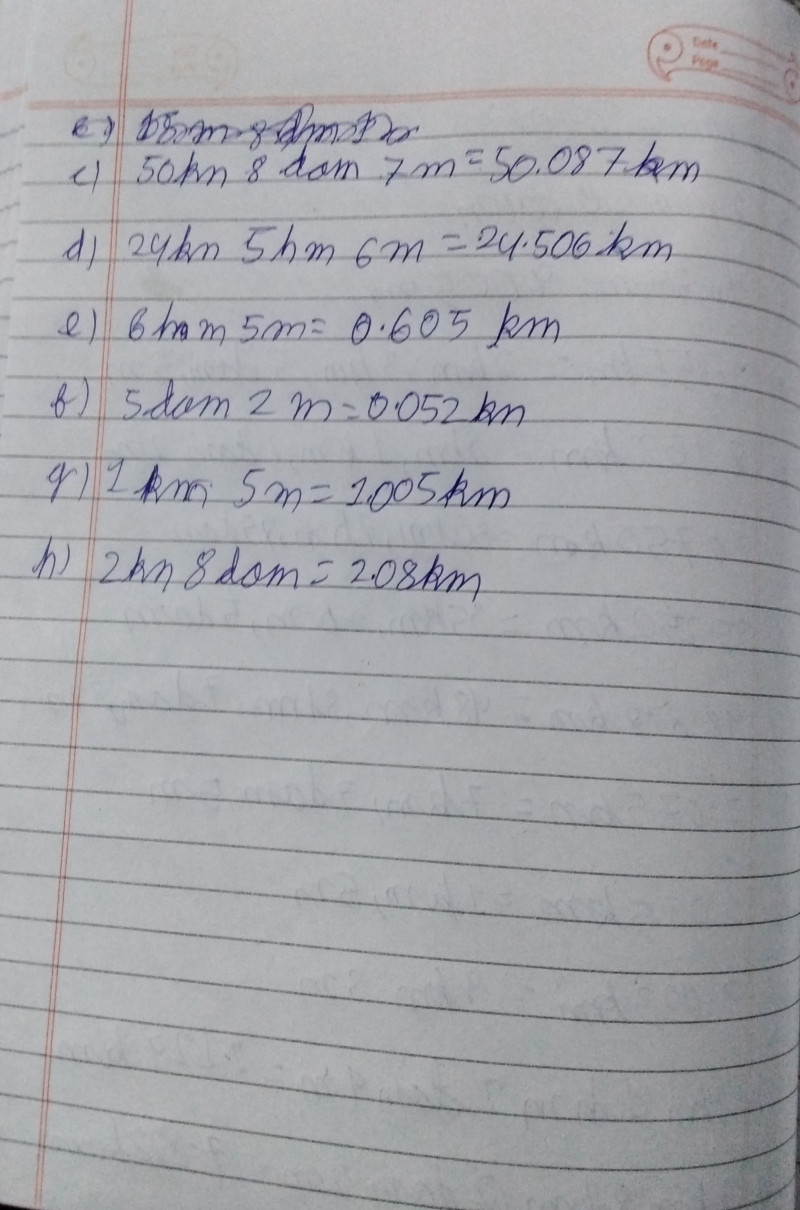 Date
Page
c) 50kn 8 dam 7m = 50.087 km
d) 24kn 5hm 6m = 24.506 km
e) 6hm 5m = 0.605 km
f) 5dam 2 m = 0.052 kn
g) 1 km 5m = 1.005km
h) 2kn 8dam = 2.08km